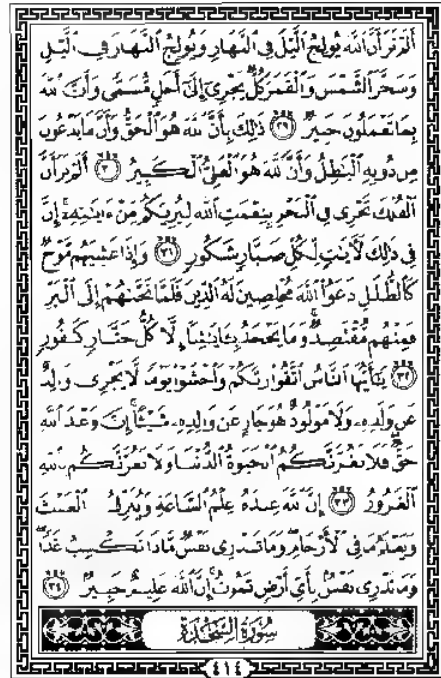 أَلَمْ تَرَ أَنَّ ٱللَّهَ يُولِجُ ٱلَّيْلَ فِي ٱلنَّهَارِ وَيُولِجُ ٱلنَّهَارَ فِي ٱلَّيْلِ
وَسَخَّرَ ٱلشَّمْسَ وَٱلْقَمَرَ كُلٌّ يَجْرِىٓ إِلَىٰٓ أَجَلٍ مُّسَمًّى وَأَنَّ ٱللَّهَ
بِمَا تَعْمَلُونَ خَبِيرٌ ٢٩ ذَٰلِكَ بِأَنَّ ٱللَّهَ هُوَ ٱلْحَقُّ وَأَنَّ مَا يَدْعُونَ
مِن دُونِهِ ٱلْبَٰطِلُ وَأَنَّ ٱللَّهَ هُوَ ٱلْعَلِىُّ ٱلْكَبِيرُ ٣٠ أَلَمْ تَرَ أَنَّ
ٱلْفُلْكَ تَجْرِى فِي ٱلْبَحْرِ بِنِعْمَتِ ٱللَّهِ لِيُرِيَكُم مِّنْ ءَايَٰتِهِۦٓ إِنَّ
فِي ذَٰلِكَ لَءَايَٰتٍ لِّكُلِّ صَبَّارٍ شَكُورٍ ٣١ وَإِذَا غَشِيَهُم مَّوْجٌ
كَٱلظُّلَلِ دَعَوُاْ ٱللَّهَ مُخْلِصِينَ لَهُ ٱلدِّينَ فَلَمَّا نَجَّىٰهُمْ إِلَى ٱلْبَرِّ
فَمِنْهُم مُّقْتَصِدٌ وَمَا يَجْحَدُ بِـَٔايَٰتِنَآ إِلَّا كُلُّ خَتَّارٍ كَفُورٍ
٣٢ يَٰٓأَيُّهَا ٱلنَّاسُ ٱتَّقُواْ رَبَّكُمْ وَٱخْشَوْاْ يَوْمًا لَّا يَجْزِى وَالِدٌ
عَن وَلَدِهِۦ وَلَا مَوْلُودٌ هُوَ جَازٍ عَن وَالِدِهِۦ شَيْـًٔا إِنَّ وَعْدَ ٱللَّهِ
حَقٌّ فَلَا تَغُرَّنَّكُمُ ٱلْحَيَوٰةُ ٱلدُّنْيَا وَلَا يَغُرَّنَّكُم بِٱللَّهِ
ٱلْغَرُورُ ٣٣ إِنَّ ٱللَّهَ عِندَهُۥ عِلْمُ ٱلسَّاعَةِ وَيُنَزِّلُ ٱلْغَيْثَ
وَيَعْلَمُ مَا فِي ٱلْأَرْحَامِ وَمَا تَدْرِى نَفْسٌ مَّاذَا تَكْسِبُ غَدًا
وَمَا تَدْرِى نَفْسٌۢ بِأَىِّ أَرْضٍ تَمُوتُ إِنَّ ٱللَّهَ عَلِيمٌ خَبِيرٌۢ ٣٤
سُورَةُ السَّجْدَةِ
٤١٤